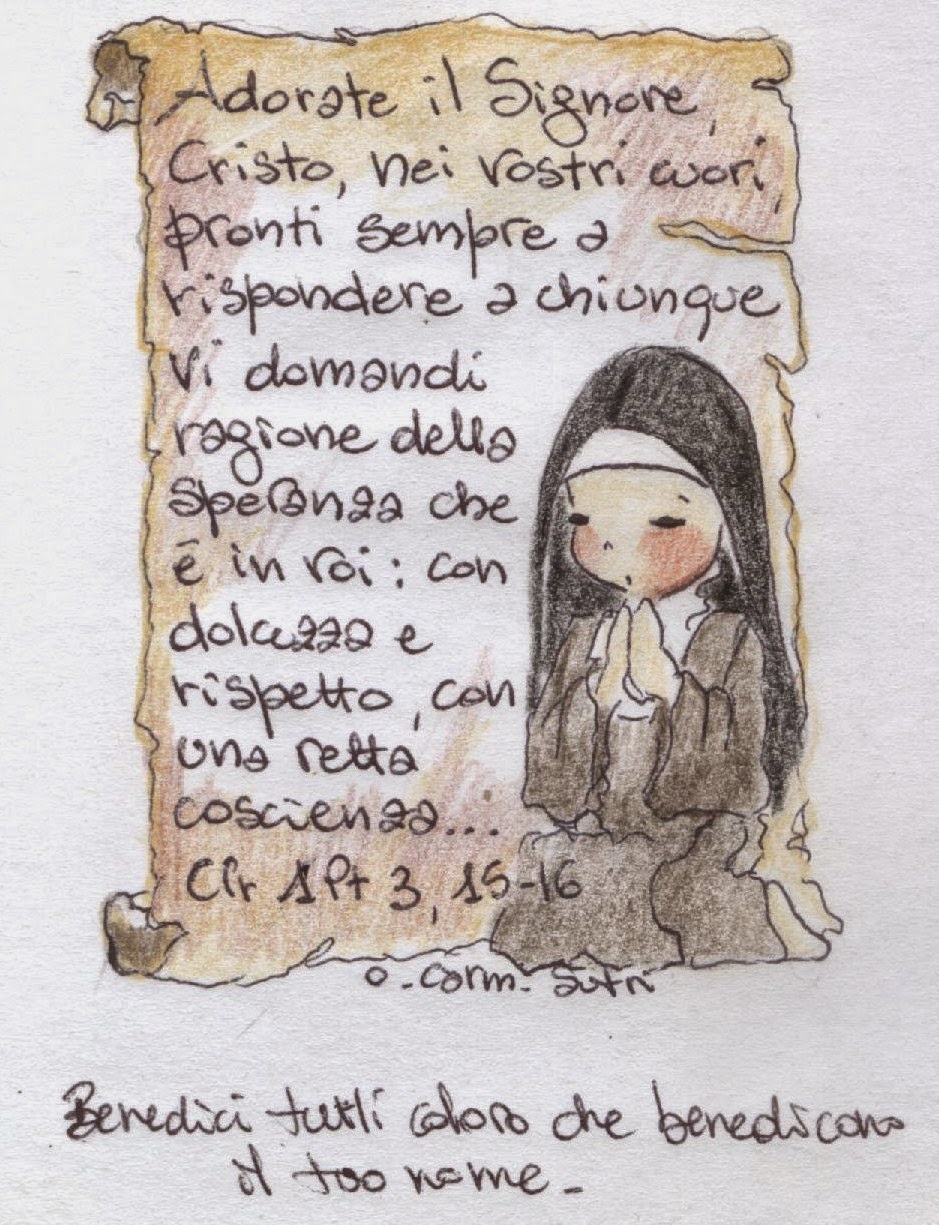 Adorate il Signore,
Cristo, nei vostri cuori,
pronti sempre a
rispondere a chiunque
vi domandi
ragione della
speranza che
è in voi: con
dolcezza e
rispetto, con
una retta
coscienza...
Cfr 1Pt 3,15-16
o. Carm. Sutri
Benedici tutti coloro che benedicono
il tuo nome.